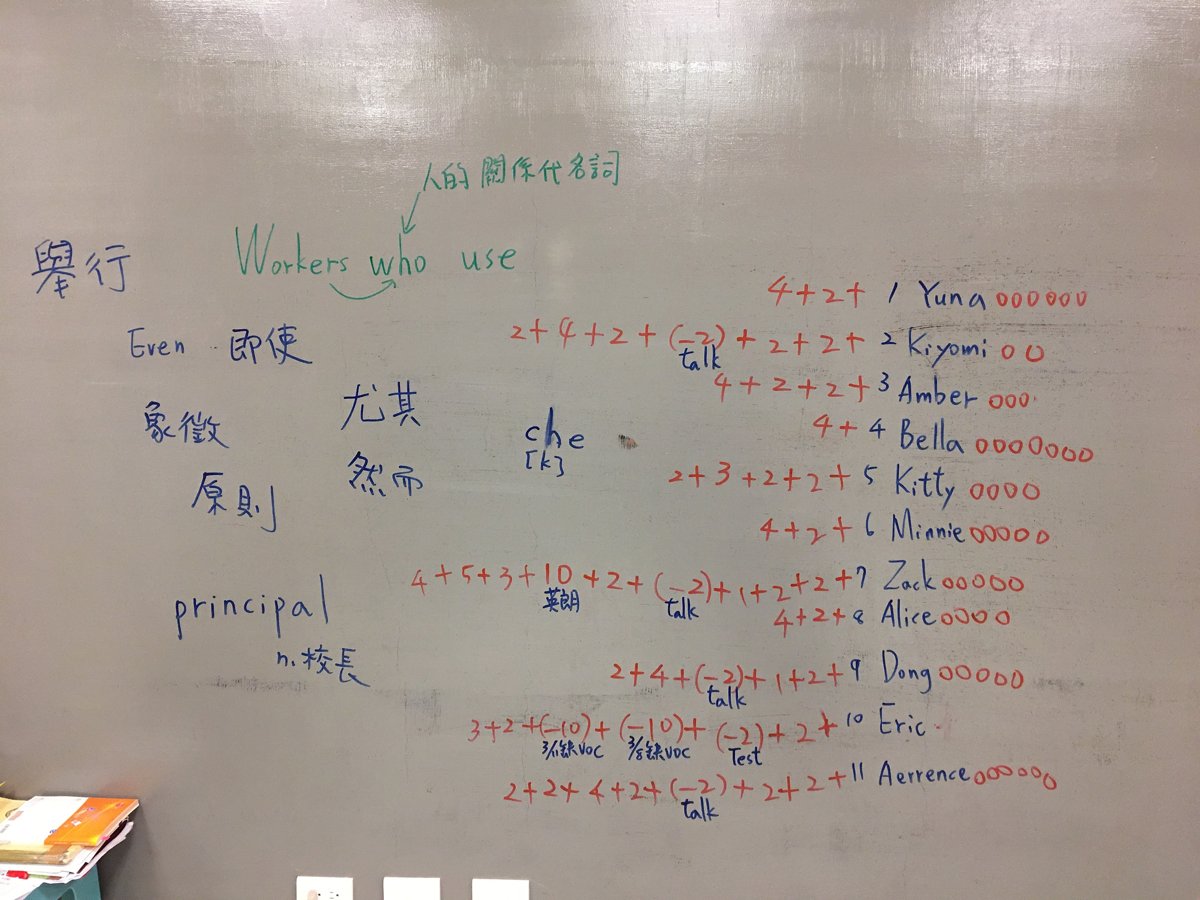 人的關係代名詞
舉行
Workers who use
Even 即使
象徵
尤其
然而
原則
che
[k]
principal
n. 校長
4+2+ 1 Yuna oooooo
2+4+2+(-2)+2+2+ 2 Kiyomi oo
talk
4+2+2+ 3 Amber ooo
4+ 4 Bella ooooooo
2+3+2+2+ 5 Kitty oooo
4+2+ 6 Minnie ooooo
4+5+3+10+2+(-2)+1+2+2+ 7 Zack ooooo
英朗 talk
4+2+ 8 Alice oooo
2+4+(-2)+1+2+ 9 Dong ooooo
talk
3+2+(-10)+(-10)+(-2)+2+ 10 Eric
3/1缺VOC 3/8缺VOC Test
2+2+4+2+(-2)+2+2+ 11 Aerrence ooooo
talk